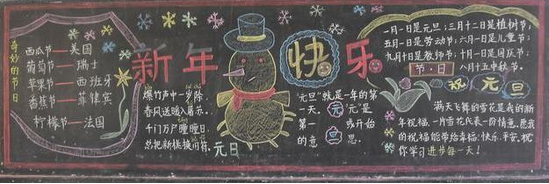 奇妙的节日
西瓜节——美国
葡萄节——瑞士
苹果节——西班牙
香蕉节——菲律宾
柠檬节——法国
新年快乐
爆竹声中一岁除
春风送暖入屠苏
千门万户曈曈日
总把新桃换旧符
元日
"元旦"就是一年的第
一天。"元"是
第一 或开始
的意思
一月一日是元旦;三月十二日是植树节;
五月一日是劳动节;六月一日是儿童节;
九月十日是教师节;十月一日是国庆节;
八月十五中秋节
节·日
祝元旦
满天飞舞的雪花是我的新
年祝福,一片雪花代表一份情意,愿我
的祝福能带给幸福、快乐、平安,祝
你学习进步每一天!